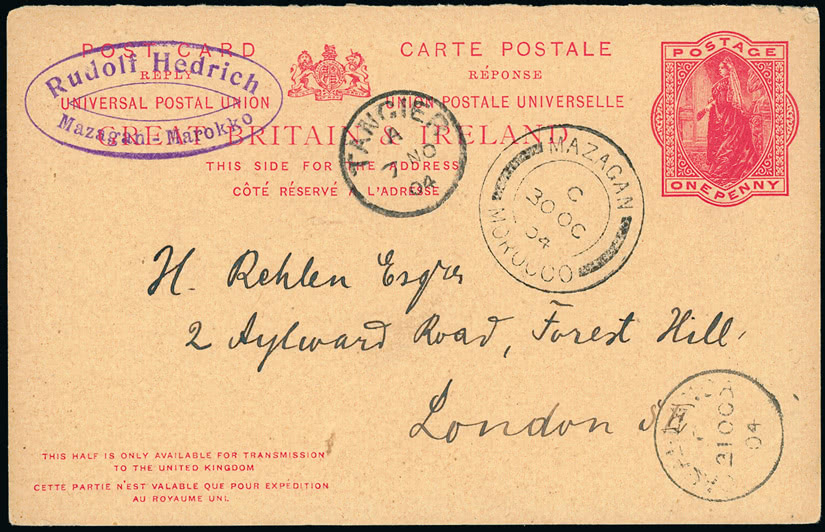 POST CARD
REPLY
UNIVERSAL POSTAL UNION
CARTE POSTALE
RÉPONSE
UNION POSTALE UNIVERSELLE
GREAT BRITAIN & IRELAND
THIS SIDE FOR THE ADDRESS
CÔTÉ RÉSERVÉ À L'ADRESSE
POSTAGE
ONE PENNY
Rudolf Hedrich
Mazagan - Marokko
TANGIER
A
7 NO
04
MAZAGAN
C
30 OC
04
MOROCCO
H. Rehlen Esqre
2 Aylward Road, Forest Hill,
London
21 OC
04
THIS HALF IS ONLY AVAILABLE FOR TRANSMISSION
TO THE UNITED KINGDOM
CETTE PARTIE N'EST VALABLE QUE POUR EXPÉDITION
AU ROYAUME UNI.